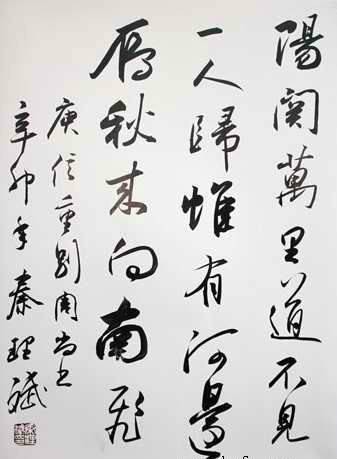 陽関萬里道不見
一人歸惟有河邊
雁秋来向南飛
庾信重别周尚书
辛卯年秦理斌